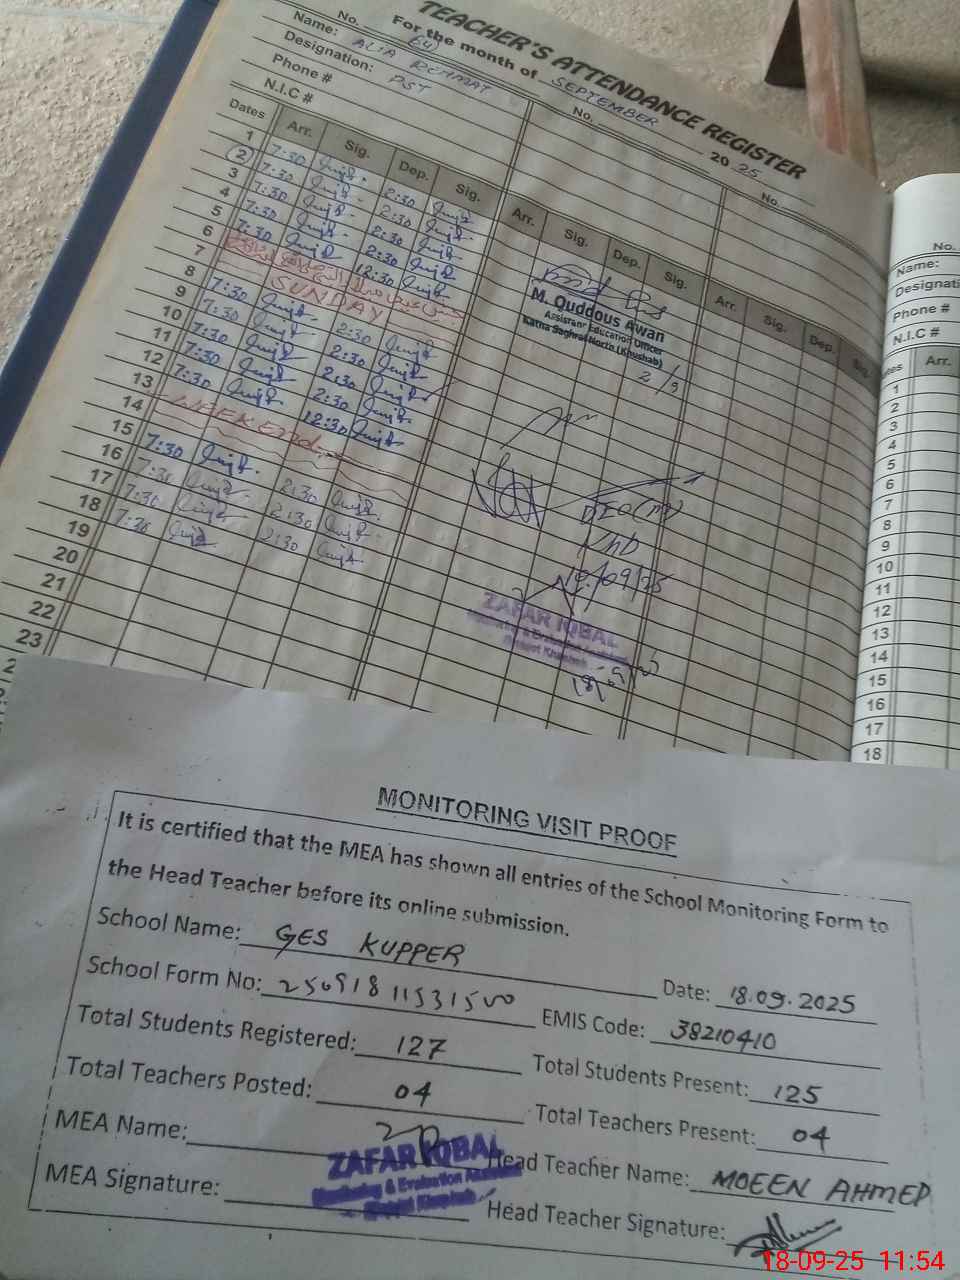 TEACHER'S ATTENDANCE REGISTER
For the month of SEPTEMBER 2025
No. (4) No. No.
Name: ALIA REHMAT
Designation: PST
Phone #
N.I.C #
Dates Arr. Sig. Dep. Sig. Arr. Sig. Dep. Sig. Arr. Sig. Dep. Sig.
1 7:30 2:30
2 7:30 2:30
3 7:30 2:30
4 7:30 2:30
5 7:30 12:30
6
7 SUNDAY
8 7:30 2:30
9 7:30 2:30
10 7:30 2:30
11 7:30 2:30
12 7:30 12:30
13 WEEKEnd
14
15 7:30 2:30
16 7:30 2:30
17 7:30 2:30
18 7:30 2:30
19
20
21
22
23
M. Quddous Awan
Assistant Education Officer
Katha Saghral North (Khushab)
2/9
DEO
Khb
/09/25
ZAFAR IQBAL
Monitoring & Evaluation Assistant
18/9/25
No.
Name:
Designati
Phone #
N.I.C #
ates Arr.
1
2
3
4
5
6
7
8
9
10
11
12
13
14
15
16
17
18
MONITORING VISIT PROOF
It is certified that the MEA has shown all entries of the School Monitoring Form to
the Head Teacher before its online submission.
School Name: GES KUPPER
Date: 18.09.2025
School Form No: 25091811531500
EMIS Code: 38210410
Total Students Registered: 127
Total Students Present: 125
Total Teachers Posted: 04
Total Teachers Present: 04
MEA Name:
ZAFAR IQBAL
Monitoring & Evaluation Assistant
Head Teacher Name: MOEEN AHMED
MEA Signature:
Head Teacher Signature:
18-09-25 11:54